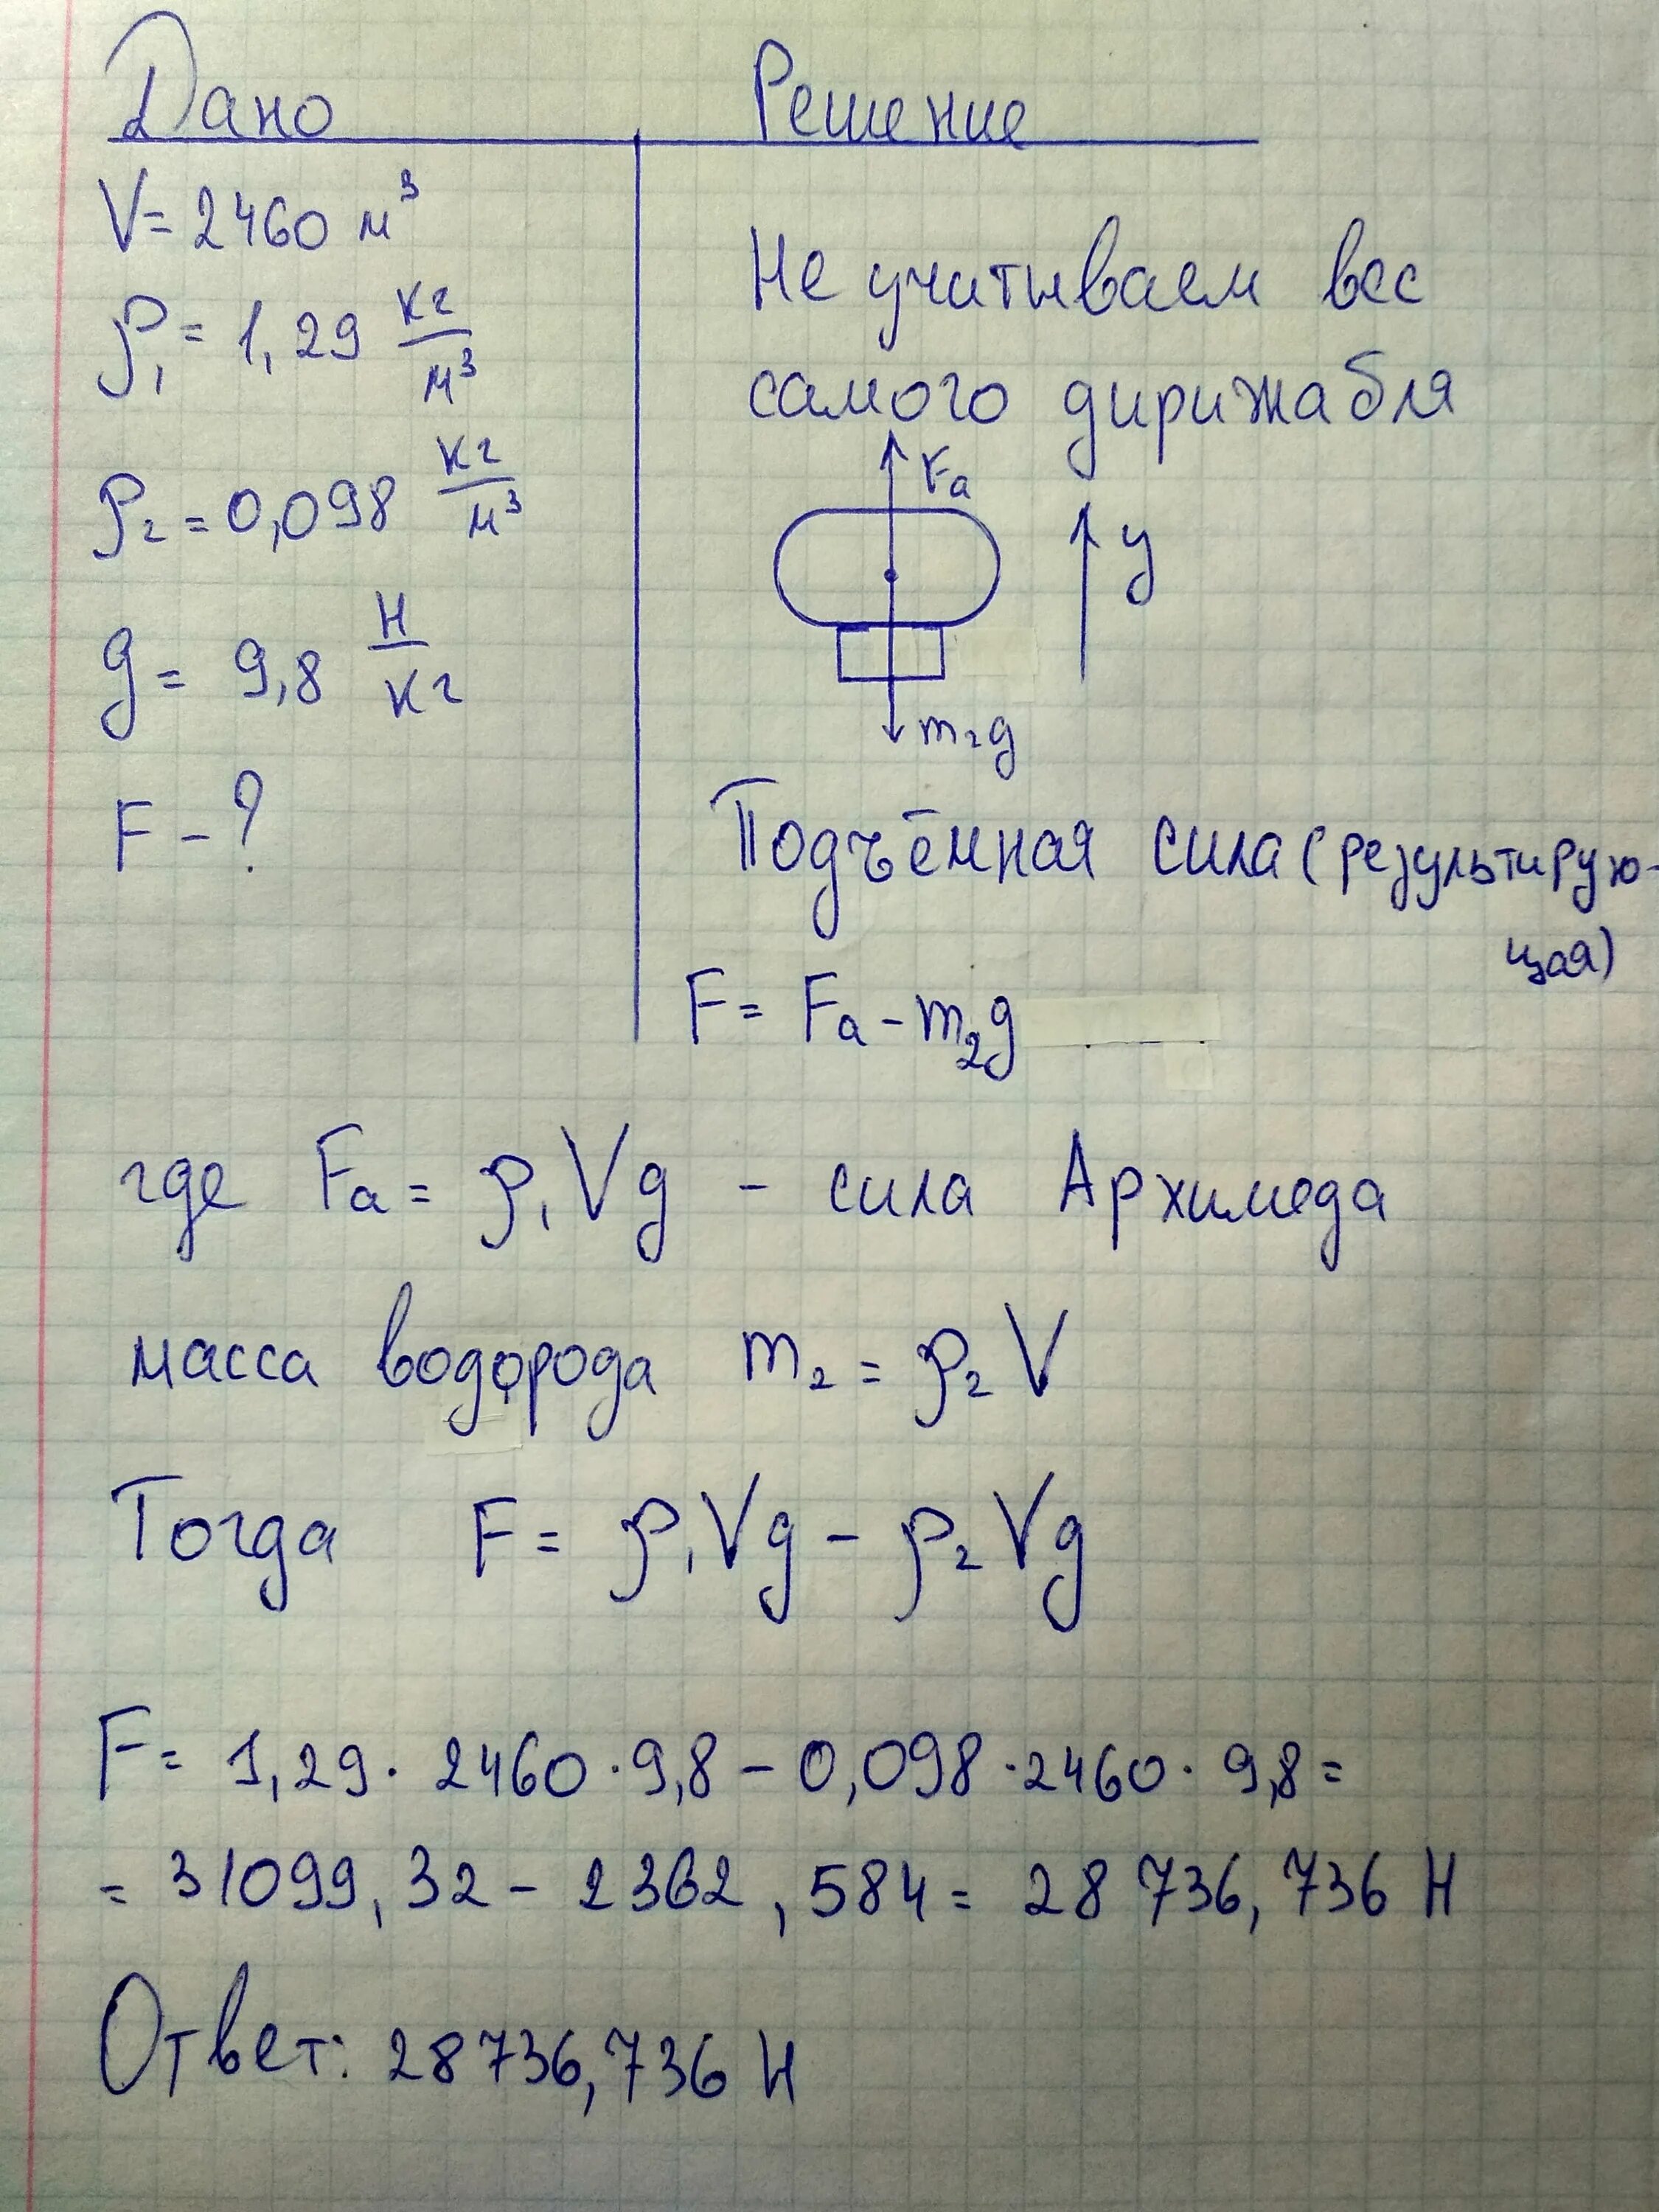 Дано
Решение
V = 2460 м³
ρ₁ = 1,29 кг/м³
ρ₂ = 0,098 кг/м³
g = 9,8 Н/кг
F - ?
Не учитываем вес
самого дирижабля
Fa
y
m₂g
Подъёмная сила (результирую-
щая)
F = Fa - m₂g
где Fa = ρ₁Vg - сила Архимеда
масса водорода m₂ = ρ₂V
Тогда F = ρ₁Vg - ρ₂Vg
F = 1,29 · 2460 · 9,8 - 0,098 · 2460 · 9,8 =
= 31099,32 - 2362,584 = 28 736,736 Н
Ответ: 28736,736 Н